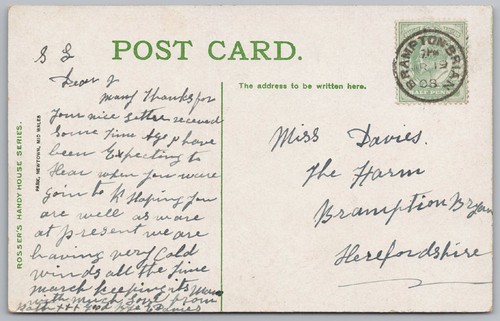 S S
POST CARD.
Dear J
Many Thanks for
Your nice Letter received
Some Time Ago I have
been Expecting to
Hear when you were
goin to K Hoping you
are well as we are
at present we are
having very Cold
winds all the Time
march keeping its
with much Love from
xxx Davies
The address to be written here.
Miss Davies.
The Farm
Brampton Bryan
Herefordshire
BRAMPTON-BRIAN
19
08
HALF PENNY
ROSSER'S HANDY HOUSE SERIES.
PARK, NEWTOWN, MID WALES